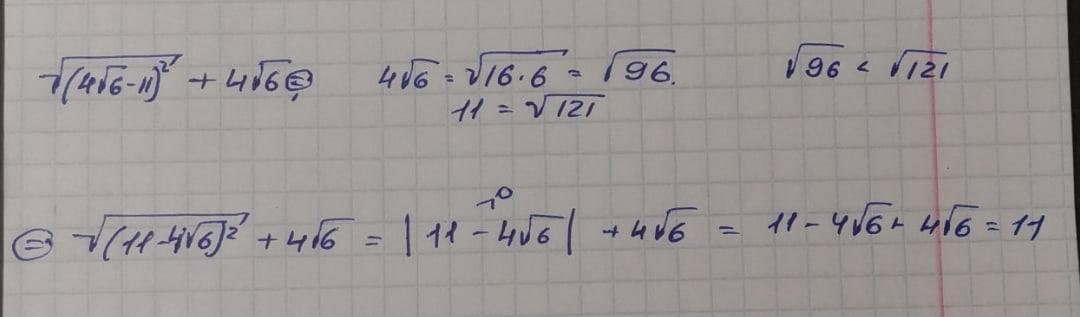 √(4√6-11)² + 4√6 = 4√6 = √16·6 = √96. √96 < √121
11 = √121
>0
= √(11-4√6)² + 4√6 = |11 - 4√6| + 4√6 = 11 - 4√6 + 4√6 = 11